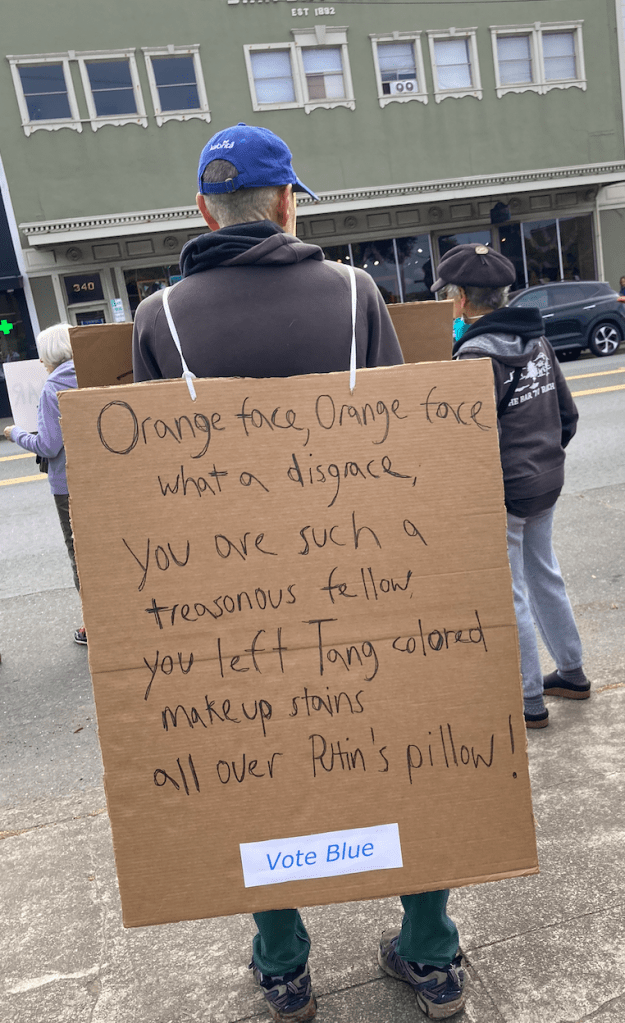 EST 1892
340
Orange face, Orange face
what a disgrace,
You are such a
treasonous fellow,
you left Tang colored
makeup stains
all over Putin's pillow!
Vote Blue